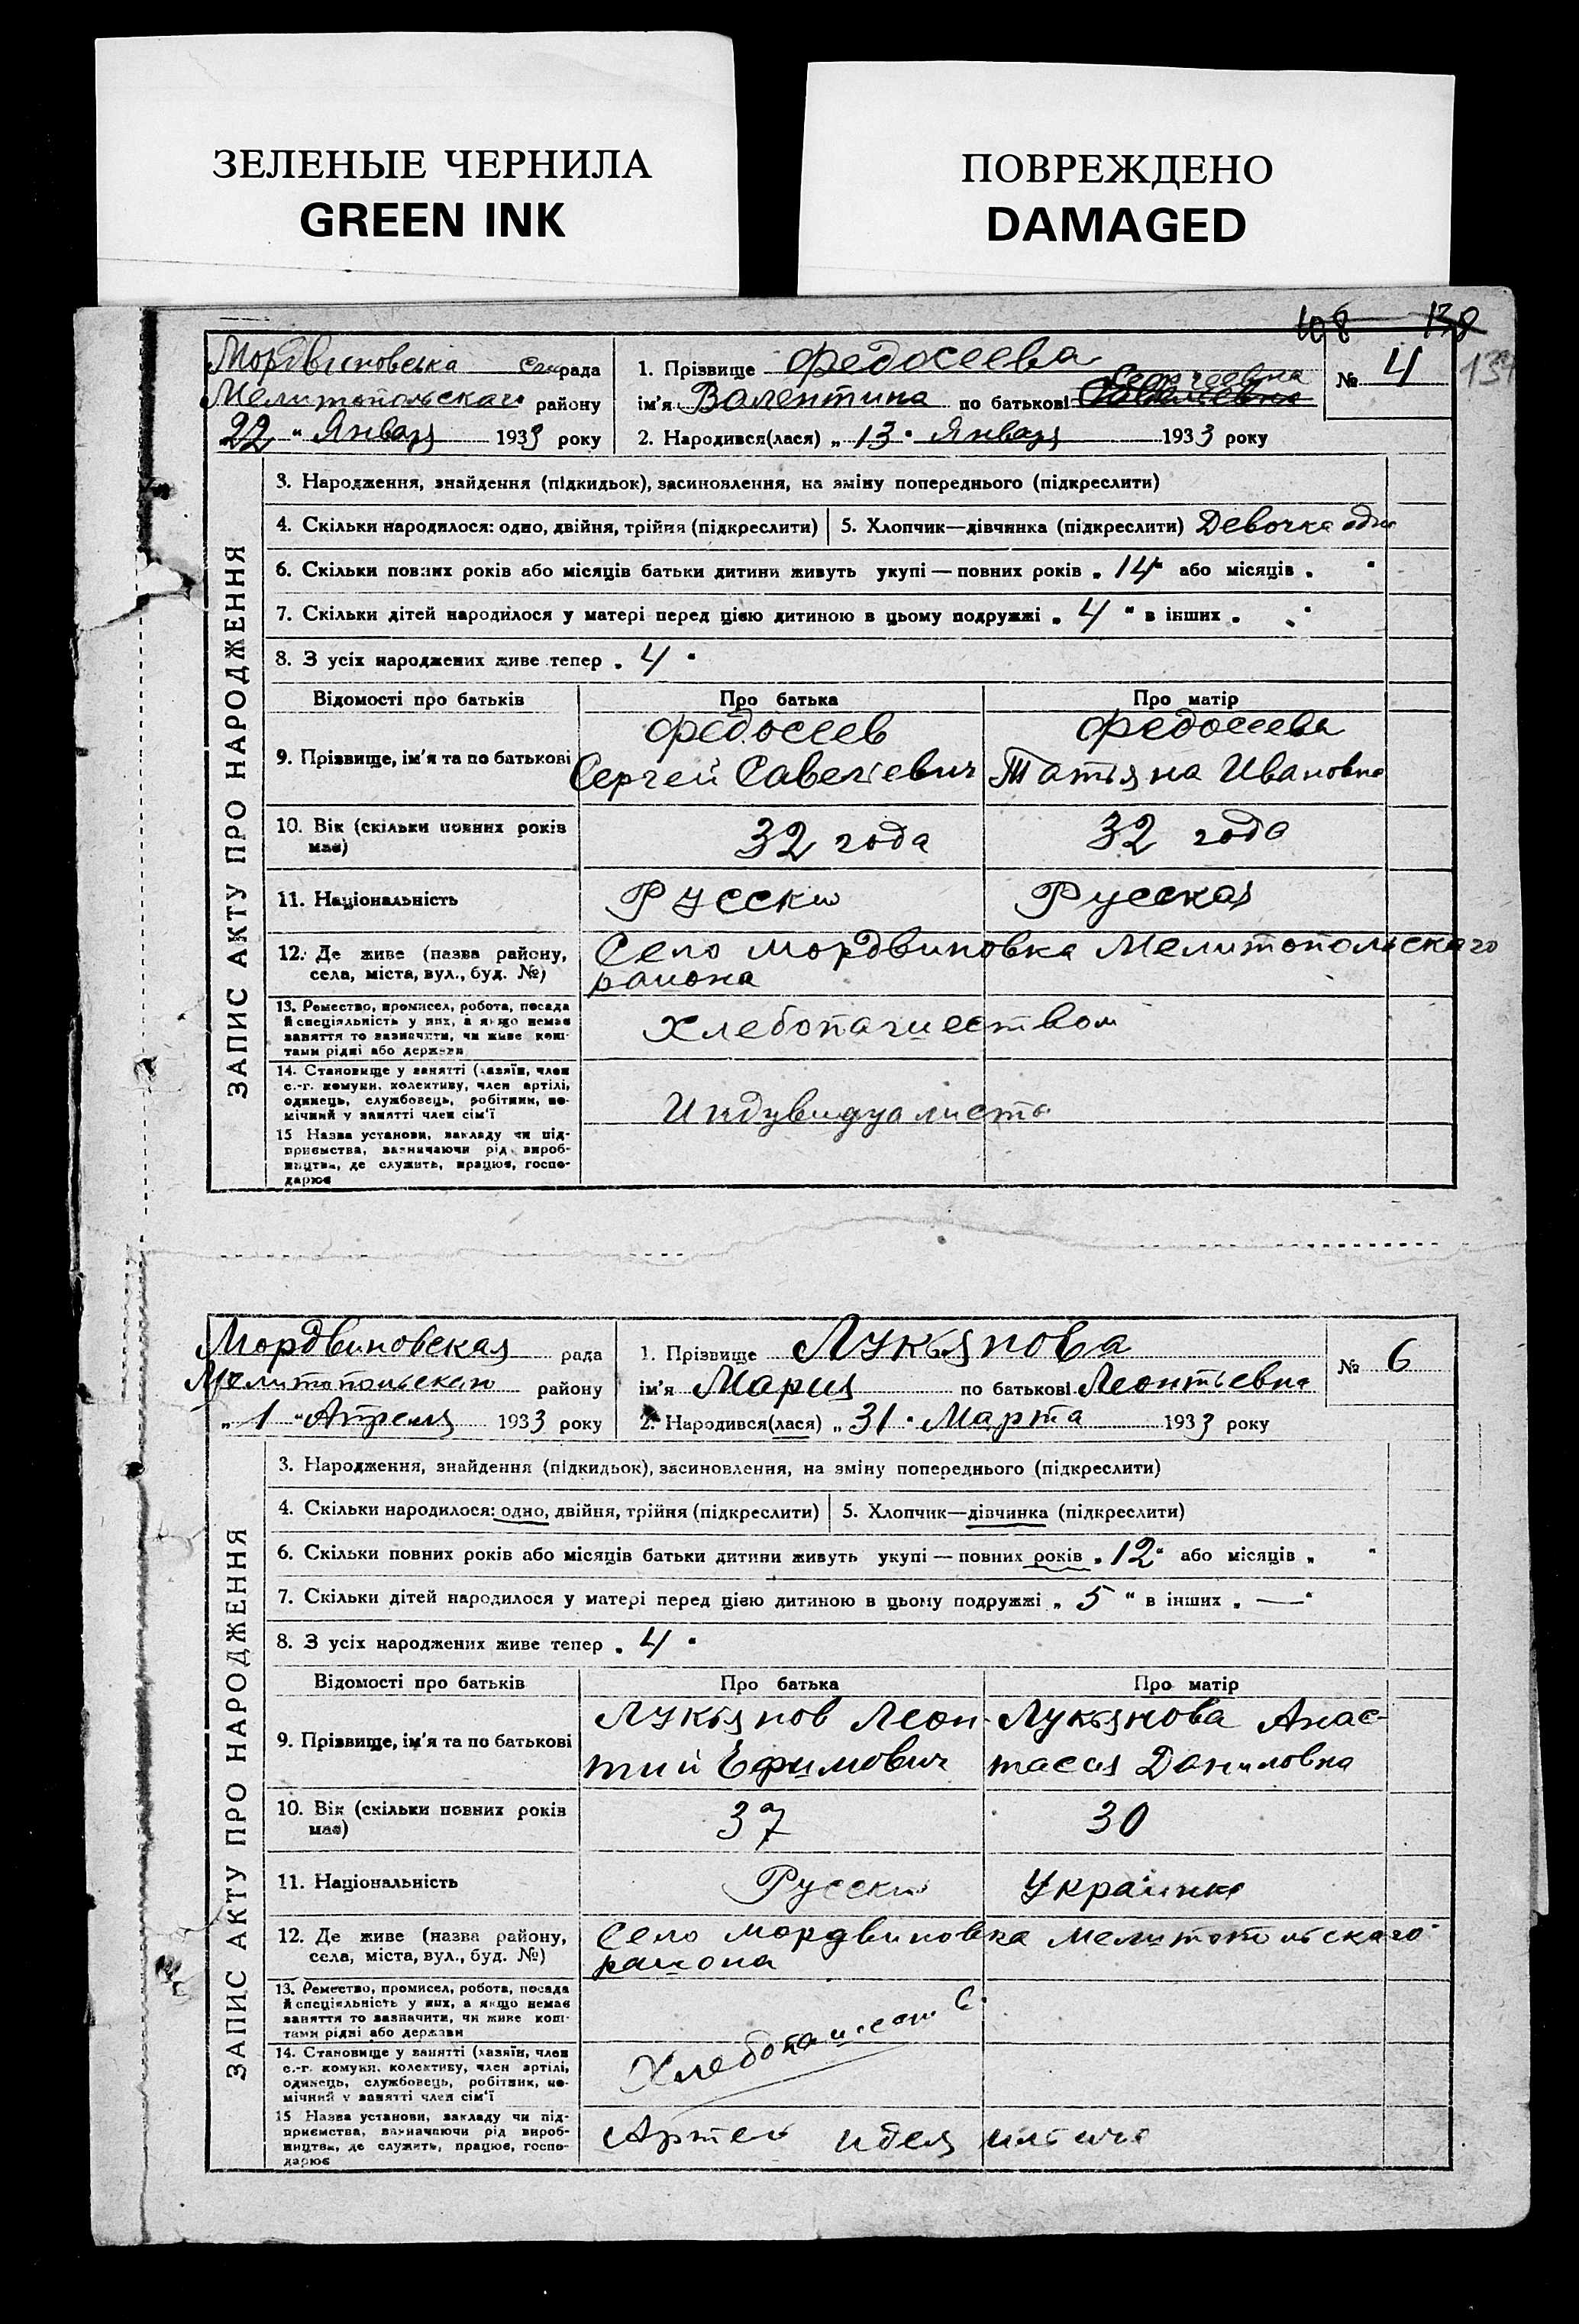 ЗЕЛЕНЫЕ ЧЕРНИЛА
GREEN INK
ПОВРЕЖДЕНО
DAMAGED
108 138
Мордвиновська рада
Мелитопольскаго району
22 " Январ 1933 року
1. Прізвище Федосеева
ім'я Валентина по батькові Сергеевна
2. Народився(лася) „ 13 " Январ 1933 року
№ 4
ЗАПИС АКТУ ПРО НАРОДЖЕННЯ
3. Народження, знайдення (підкидьок), засиновлення, на зміну попереднього (підкреслити)
4. Скільки народилося: одно, двійня, трійня (підкреслити) 5. Хлопчик—дівчинка (підкреслити) Девочка одна
6. Скільки повних років або місяців батьки дитини живуть укупі — повних років „ 14 " або місяців „ "
7. Скільки дітей народилося у матері перед цією дитиною в цьому подружжі „ 4 " в інших „ "
8. З усіх народжених живе тепер „ 4 "
Відомості про батьків Про батька Про матір
9. Прізвище, ім'я та по батькові
Федосеев
Сергей Савелiевич
Федосеева
Татьяна Ивановна
10. Вік (скільки повних років
має)
32 года
32 года
11. Національність Русски Русская
12. Де живе (назва району,
села, міста, вул., буд. №)
Село мордвиновка Мелитопольскаго
района
13. Ремество, промисел, робота, посада
й спеціяльність у них, а якщо немає
заняття то зазначити, чи живе кош-
тами рідні або держави
Хлебопашеством
14. Становище у занятті (хазяїн, член
с.-г. комуни, колективу, член артілі,
одинець, службовець, робітник, по-
мічний у занятті член сім'ї
Индувидуалиста
15 Назва установи, закладу чи під-
приємства, зазначаючи рід вироб-
ництва, де служить, працює, госпо-
дарює
Мордвиновская рада
Мелитопольскаго району
„ 1 " Апреля 1933 року
1. Прізвище Лукьянова
ім'я Мария по батькові Леонтьевна
2. Народився(лася) „ 31 " Марта 1933 року
№ 6
ЗАПИС АКТУ ПРО НАРОДЖЕННЯ
3. Народження, знайдення (підкидьок), засиновлення, на зміну попереднього (підкреслити)
4. Скільки народилося: одно, двійня, трійня (підкреслити) 5. Хлопчик—дівчинка (підкреслити)
6. Скільки повних років або місяців батьки дитини живуть укупі — повних років „ 12 " або місяців „ "
7. Скільки дітей народилося у матері перед цією дитиною в цьому подружжі „ 5 " в інших „ — "
8. З усіх народжених живе тепер „ 4 "
Відомості про батьків Про батька Про матір
9. Прізвище, ім'я та по батькові
Лукьянов Леон-
тий Ефимович
Лукьянова Анас-
тасия Даниловна
10. Вік (скільки повних років
має)
37
30
11. Національність Русски Украинка
12. Де живе (назва району,
села, міста, вул., буд. №)
Село мордвиновка мелитопольскаго
района
13. Ремество, промисел, робота, посада
й спеціяльність у них, а якщо немає
заняття то зазначити, чи живе кош-
тами рідні або держави
14. Становище у занятті (хазяїн, член
с.-г. комуни, колективу, член артілі,
одинець, службовець, робітник, по-
мічний у занятті член сім'ї
15 Назва установи, закладу чи під-
приємства, зазначаючи рід вироб-
ництва, де служить, працює, госпо-
дарює
Артел идея ильича